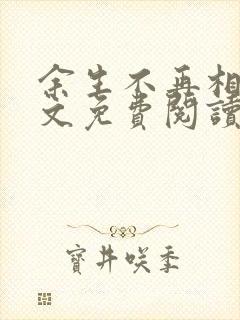 余生不再相
文免費閱讀
寶井咲季